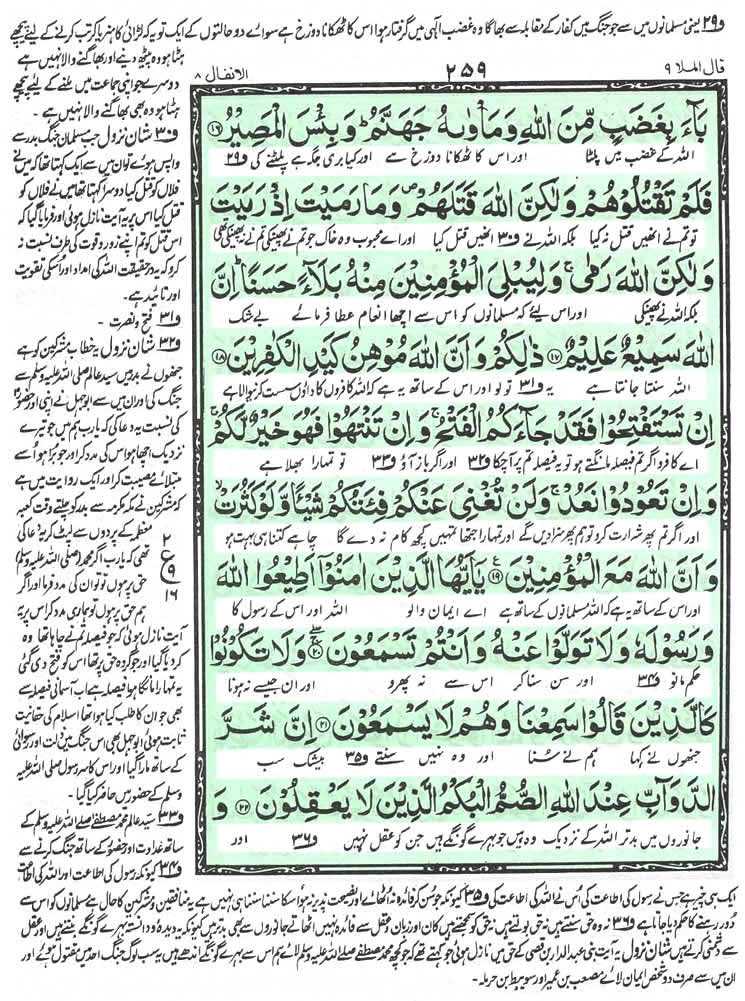 و۲۹ یعنی مسلمانوں میں سے جو جنگ میں کفار کے مقابلہ سے بھاگا وہ غضب الٰہی میں گرفتار ہوا اس کا ٹھکانا دوزخ ہے سوائے دو حالتوں کے ایک تو یہ کہ لڑائی کا ہنر یا کرتب کرنے کے لیے پیچھے
قال الملا ۹
۲۵۹
الانفال ۸
بَآءَ بِغَضَبٍ مِّنَ اللّٰهِ وَمَاْوٰىهُ جَهَنَّمُ ؕ وَ بِئْسَ الْمَصِیْرُ ﴿۱۶﴾
اللہ کے غضب میں پلٹا اور اس کا ٹھکانا دوزخ ہے اور کیا بری جگہ ہے پلٹنے کی و۲۹
فَلَمْ تَقْتُلُوْهُمْ وَلٰكِنَّ اللّٰهَ قَتَلَهُمْ ۪ وَمَا رَمَیْتَ اِذْ رَمَیْتَ
تو تم نے انھیں قتل نہ کیا بلکہ اللہ نے و۳۰ انھیں قتل کیا اور اے محبوب وہ خاک جو تم نے پھینکی تم نے نہ پھینکی تھی
وَلٰكِنَّ اللّٰهَ رَمٰی ۚ وَلِیُبْلِیَ الْمُؤْمِنِیْنَ مِنْهُ بَلَآءً حَسَنًا ؕ اِنَّ
بلکہ اللہ نے پھینکی اور اس لیے کہ مسلمانوں کو اس سے اچھا انعام عطا فرمائے بے شک
اللّٰهَ سَمِیْعٌ عَلِیْمٌ ﴿۱۷﴾ ذٰلِكُمْ وَ اَنَّ اللّٰهَ مُوْهِنُ كَیْدِ الْكٰفِرِیْنَ ﴿۱۸﴾
اللہ سنتا جانتا ہے یہ و۳۱ تو لو اور اس کے ساتھ یہ ہے کہ اللہ کافروں کا داؤں سست کرنیوالا ہے
اِنْ تَسْتَفْتِحُوْا فَقَدْ جَآءَكُمُ الْفَتْحُ ۚ وَ اِنْ تَنْتَهُوْا فَهُوَ خَیْرٌ لَّكُمْ ۚ
اے کافرو اگر تم فیصلہ مانگتے ہو تو یہ فیصلہ تم پر آچکا و۳۲ اور اگر باز آؤ و۳۳ تو تمہارا بھلا ہے
وَ اِنْ تَعُوْدُوْا نَعُدْ ۚ وَلَنْ تُغْنِیَ عَنْكُمْ فِئَتُكُمْ شَیْئًا وَّلَوْ كَثُرَتْ ۙ
اور اگر تم پھر شرارت کرو تو ہم پھر سزا دیں گے اور تمہارا جتھا تمہیں کچھ کام نہ دے گا چاہے کتنا ہی بہت ہو
وَ اَنَّ اللّٰهَ مَعَ الْمُؤْمِنِیْنَ ﴿۱۹﴾ یٰۤاَیُّهَا الَّذِیْنَ اٰمَنُوْۤا اَطِیْعُوا اللّٰهَ
اور اس کے ساتھ یہ ہے کہ اللہ مسلمانوں کے ساتھ ہے اے ایمان والو اللہ اور اس کے رسول کا
وَ رَسُوْلَهٗ وَلَا تَوَلَّوْا عَنْهُ وَ اَنْتُمْ تَسْمَعُوْنَ ﴿۲۰﴾ وَلَا تَكُوْنُوْا
حکم مانو و۳۴ اور سن سنا کر اس سے نہ پھرو اور ان جیسے نہ ہونا
كَالَّذِیْنَ قَالُوْا سَمِعْنَا وَهُمْ لَا یَسْمَعُوْنَ ﴿۲۱﴾ اِنَّ شَرَّ
جنھوں نے کہا ہم نے سُنا اور وہ نہیں سنتے و۳۵ بیشک سب
الدَّوَآبِّ عِنْدَ اللّٰهِ الصُّمُّ الْبُكْمُ الَّذِیْنَ لَا یَعْقِلُوْنَ ﴿۲۲﴾ وَ
جانوروں میں بدتر اللہ کے نزدیک وہ ہیں جو بہرے گونگے ہیں جن کو عقل نہیں و۳۶ اور
ہٹا ہو وہ پیٹھ دینے اور بھاگنے والا نہیں ہے
دوسرے جو اپنی جماعت میں ملنے کے لئے پیچھے
ہٹا ہو وہ بھی بھاگنے والا نہیں ہے
و۳۰ شان نزول جب مسلمان جنگ بدر سے
واپس ہوئے تو ان میں سے ایک کہتا تھا کہ میں نے
فلاں کو قتل کیا دوسرا کہتا تھا میں نے فلاں کو
قتل کیا اس پر یہ آیت نازل ہوئی اور فرمایا گیا کہ
اس قتل کو تم اپنے زور و قوت کی طرف نسبت نہ
کرو کہ یہ درحقیقت اللہ کی امداد اور اسکی تقویت
اور تائید ہے۔
و۳۱ فتح و نصرت
و۳۲ شان نزول یہ خطاب مشرکین کو ہے
جنھوں نے بدر میں سید عالم صلی اللہ علیہ وسلم سے
جنگ کی اور ان میں سے ابوجہل نے اپنی اور حضور کی
کی نسبت یہ دعا کی کہ یارب ہم میں جو تیرے
نزدیک اچھا ہو اس کی مدد کر اور جو برا ہو اسے
مبتلائے مصیبت کر اور ایک روایت میں ہے
کہ مشرکین نے مکہ مکرمہ سے بدر کو چلتے وقت کعبہ
معظمہ کے پردوں سے لپٹ کر یہ دعا کی
تھی کہ یارب اگر محمد (صلی اللہ علیہ وسلم)
حق پر ہوں تو ان کی مدد فرما اور اگر
ہم حق پر ہوں تو ہماری مدد کر اس پر یہ
آیت نازل ہوئی کہ جو فیصلہ تم نے چاہا تھا وہ
کر دیا گیا اور جو گروہ حق پر تھا اس کو فتح دی گئی
یہ تمہارا مانگا ہوا فیصلہ ہے اب آسمانی فیصلہ سے
بھی جو ان کا طلب کیا ہوا تھا اسلام کی حقانیت
ثابت ہوئی ابوجہل بھی اس جنگ میں ذلت اور رسوائی
کے ساتھ مارا گیا اور اس کا سر رسول صلی اللہ علیہ
وسلم کے حضور میں حاضر کیا گیا۔
و۳۳ سید عالم محمد مصطفےٰ صلی اللہ علیہ وسلم کے
ساتھ عداوت اور حضور کے ساتھ جنگ کرنے سے
و۳۴ کیونکہ رسول کی اطاعت اور اللہ کی اطاعت
۲
ع
۹
۱۶
ایک ہی چیز ہے جس نے رسول کی اطاعت کی اُس نے اللہ کی اطاعت کی و۳۵ کیونکہ جو سُن کر فائدہ نہ اُٹھائے اور نصیحت پذیر نہ ہو اُس کا سننا سننا ہی نہیں ہے یہ منافقین و مشرکین کا حال ہے مسلمانوں کو اس سے
دُور رہنے کا حکم دیا جاتا ہے و۳۶ نہ وہ حق سنتے ہیں نہ حق بولتے ہیں نہ حق کو سمجھتے ہیں کان اور زبان و عقل سے فائدہ نہیں اٹھاتے جانوروں سے بھی بدتر ہیں کیونکہ یہ دیدہ و دانستہ بہرے گونگے بنتے ہیں اور عقل
سے دشمنی کرتے ہیں شان نزول یہ آیت بنی عبدالدار بن قصی کے حق میں نازل ہوئی جو کہتے تھے کہ جو کچھ محمد مصطفےٰ صلی اللہ علیہ وسلم لائے ہم اس سے بہرے گونگے اندھے ہیں یہ سب لوگ جنگ احد میں مقتول ہوئے اور
ان میں سے صرف دو شخص ایمان لائے مصعب بن عمیر اور سویبط بن حرملہ۔